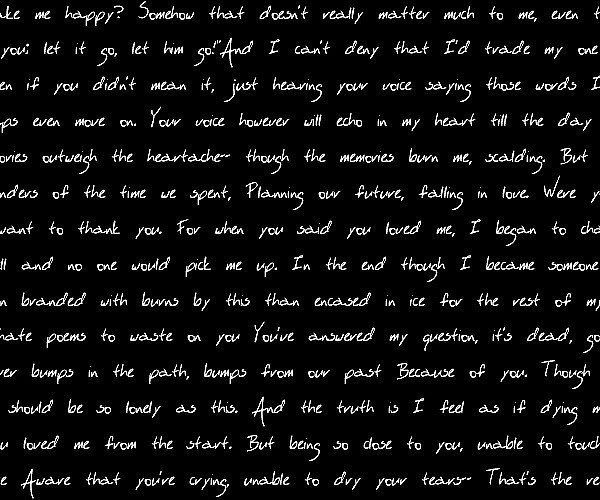 ake me happy? Somehow that doesn't really matter much to me, even t
you; let it go, let him go!"And I can't deny that I'd trade my one
en if you didn't mean it, just hearing your voice saying those words I
ps even move on. Your voice however will echo in my heart till the day
ories outweigh the heartache~ though the memories burn me, scalding. But
nders of the time we spent, Planning our future, falling in love. Were y
want to thank you. For when you said you loved me, I began to cha
ll and no one would pick me up. In the end though I became someone
n branded with burns by this than encased in ice for the rest of my
hate poems to waste on you You've answered my question, it's dead, go
ver bumps in the path, bumps from our past Because of you. Though
should be so lonely as this. And the truth is I feel as if dying m
u loved me from the start. But being so close to you, unable to touch
e Aware that you're crying, unable to dry your tears~ That's the ve